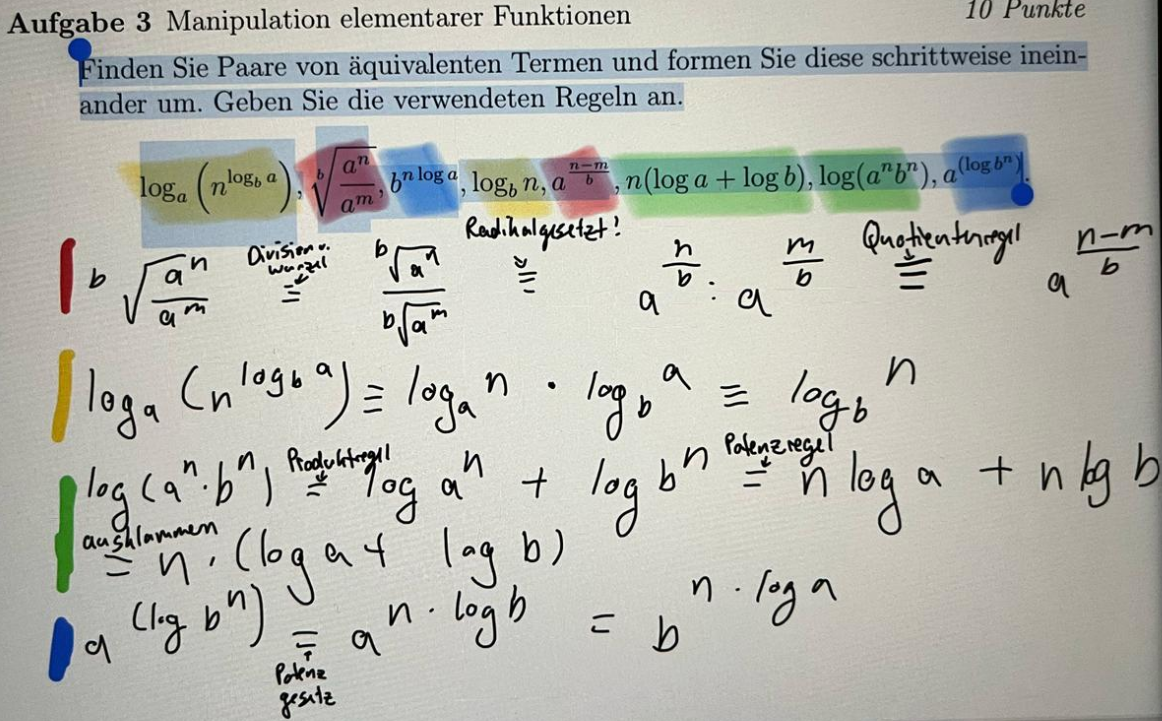 Aufgabe 3 Manipulation elementarer Funktionen 10 Punkte
Finden Sie Paare von äquivalenten Termen und formen Sie diese schrittweise inein-
ander um. Geben Sie die verwendeten Regeln an.
logₐ (n^(log_b a)), ᵇ√(aⁿ/aᵐ), b^(n log a), log_b n, a^((n−m)/b), n(log a + log b), log(aⁿbⁿ), a^((log bⁿ)).
ᵇ√(aⁿ/aᵐ) Division v. Wurzel ≡ ᵇ√aⁿ / ᵇ√aᵐ Radikalgesetzt! ≡ a^(n/b) : a^(m/b) Quotientenregel ≡ a^((n−m)/b)
logₐ (n^(log_b a)) ≡ logₐ n · log_b a ≡ log_b n
log (aⁿ · bⁿ) Produktregel = log aⁿ + log bⁿ Potenzregel = n log a + n log b
ausklammen = n · (log a + log b)
a^((log bⁿ)) = a^(n · log b) = b^(n · log a)
Potenz
gesetz